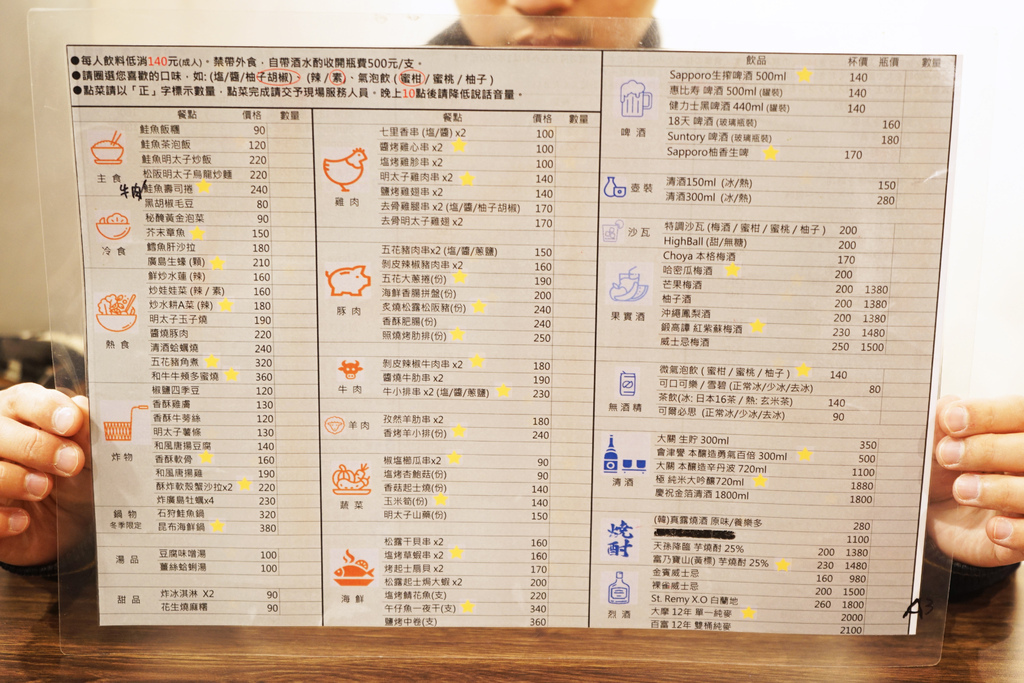 ●每人飲料低消140元(成人)。禁帶外食，自帶酒水酌收開瓶費500元/支。
●請圈選您喜歡的口味，如: (塩/醬/柚子胡椒) (辣/素)、氣泡飲 (蜜柑/蜜桃/柚子)
●點菜請以「正」字標示數量，點菜完成請交予現場服務人員。晚上10點後請降低說話音量。
餐點 價格 數量
主食
鮭魚飯糰 90
鮭魚茶泡飯 120
鮭魚明太子炒飯 220
松阪明太子烏龍炒麵 220
牛肉
鮭魚壽司捲 240
冷食
黑胡椒毛豆 80
秘醃黃金泡菜 90
芥末章魚 150
鱈魚肝沙拉 180
廣島生蠔 (顆) 210
熱食
鮮炒水蓮 (辣) 160
炒娃娃菜 (辣 / 素) 160
炒水耕A菜 (辣) 180
明太子玉子燒 190
醬燒豚肉 220
清酒蛤蠣燒 240
五花豬角煮 320
和牛牛頰多蜜燒 360
炸物
椒鹽四季豆 120
香酥雞膚 130
香酥牛蒡絲 130
明太子薯條 130
和風唐揚豆腐 140
香酥軟骨 160
和風唐揚雞 190
酥炸軟殼蟹沙拉x2 220
炸廣島牡蠣x4 230
鍋物
冬季限定
石狩鮭魚鍋 320
昆布海鮮鍋 380
湯品
豆腐味噌湯 100
薑絲蛤蜊湯 100
甜品
炸冰淇淋 X2 90
花生燒麻糬 90
餐點 價格 數量
雞肉
七里香串 (塩/醬) x2 100
醬烤雞心串 x2 100
塩烤雞胗串 x2 100
明太子雞肉串 x2 140
鹽烤雞翅串 x2 140
去骨雞腿串 x2 (塩/醬/柚子胡椒) 170
去骨明太子雞翅 x2 170
豚肉
五花豬肉串x2 (塩/醬/蔥鹽) 150
剝皮辣椒豬肉串 x2 160
五花大蔥捲(份) 190
海鮮香腸拼盤(份) 200
炙燒松露松阪豬(份) 240
香酥肥腸(份) 240
照燒烤肋排(份) 250
牛肉
剝皮辣椒牛肉串 x2 180
醬燒牛肋串 x2 190
牛小排串 x2 (塩/醬/蔥鹽) 230
羊肉
孜然羊肋串 x2 180
香烤羊小排(份) 240
蔬菜
椒塩櫛瓜串x2 90
塩烤杏鮑菇(份) 90
香菇起士燒(份) 140
玉米筍(份) 140
明太子山藥(份) 150
海鮮
松露干貝串 x2 160
塩烤草蝦串 x2 160
烤起士扇貝 x2 170
松露起士焗大蝦 x2 200
塩烤鯖花魚(支) 220
午仔魚一夜干(支) 340
鹽烤中卷(支) 360
飲品 杯價 瓶價 數量
啤酒
Sapporo生搾啤酒 500ml 140
惠比寿 啤酒 500ml (罐裝) 140
健力士黑啤酒 440ml (罐裝) 140
18天 啤酒 (玻璃瓶裝) 160
Suntory 啤酒 (玻璃瓶裝) 180
Sapporo柚香生啤 170
壺裝
清酒150ml (冰/熱) 150
清酒300ml (冰/熱) 280
沙瓦
特調沙瓦 (梅酒 / 蜜柑 / 蜜桃 / 柚子) 200
HighBall (甜/無糖) 200
果實酒
Choya 本格梅酒 170
哈密瓜梅酒 200
芒果梅酒 200 1380
柚子酒 200 1380
沖繩鳳梨酒 200 1380
鍛高譚 紅紫蘇梅酒 230 1480
威士忌梅酒 250 1500
無酒精
微氣泡飲 ( 蜜柑 / 蜜桃 / 柚子 ) 140
可口可樂 / 雪碧 (正常冰/少冰/去冰) 80
茶飲(冰: 日本16茶 / 熱: 玄米茶) 140
可爾必思 (正常冰/少冰/去冰) 90
清酒
大關 生貯 300ml 350
會津譽 本醸造勇氣百倍 300ml 500
大關 本醸造辛丹波 720ml 1100
極 純米大吟釀720ml 1880
慶祝金箔清酒 1800ml 1800
焼酎
(韓)真露燒酒 原味/養樂多 280
1100
天孫降臨 芋燒酎 25% 200 1380
富乃寶山(黃標) 芋燒酎 25% 230 1480
烈酒
金賓威士忌 160 980
裸雀威士忌 200 1500
St. Remy X.O 白蘭地 260 1800
大摩 12年 單一純麥 2000
百富 12年 雙桶純麥 2100
A3